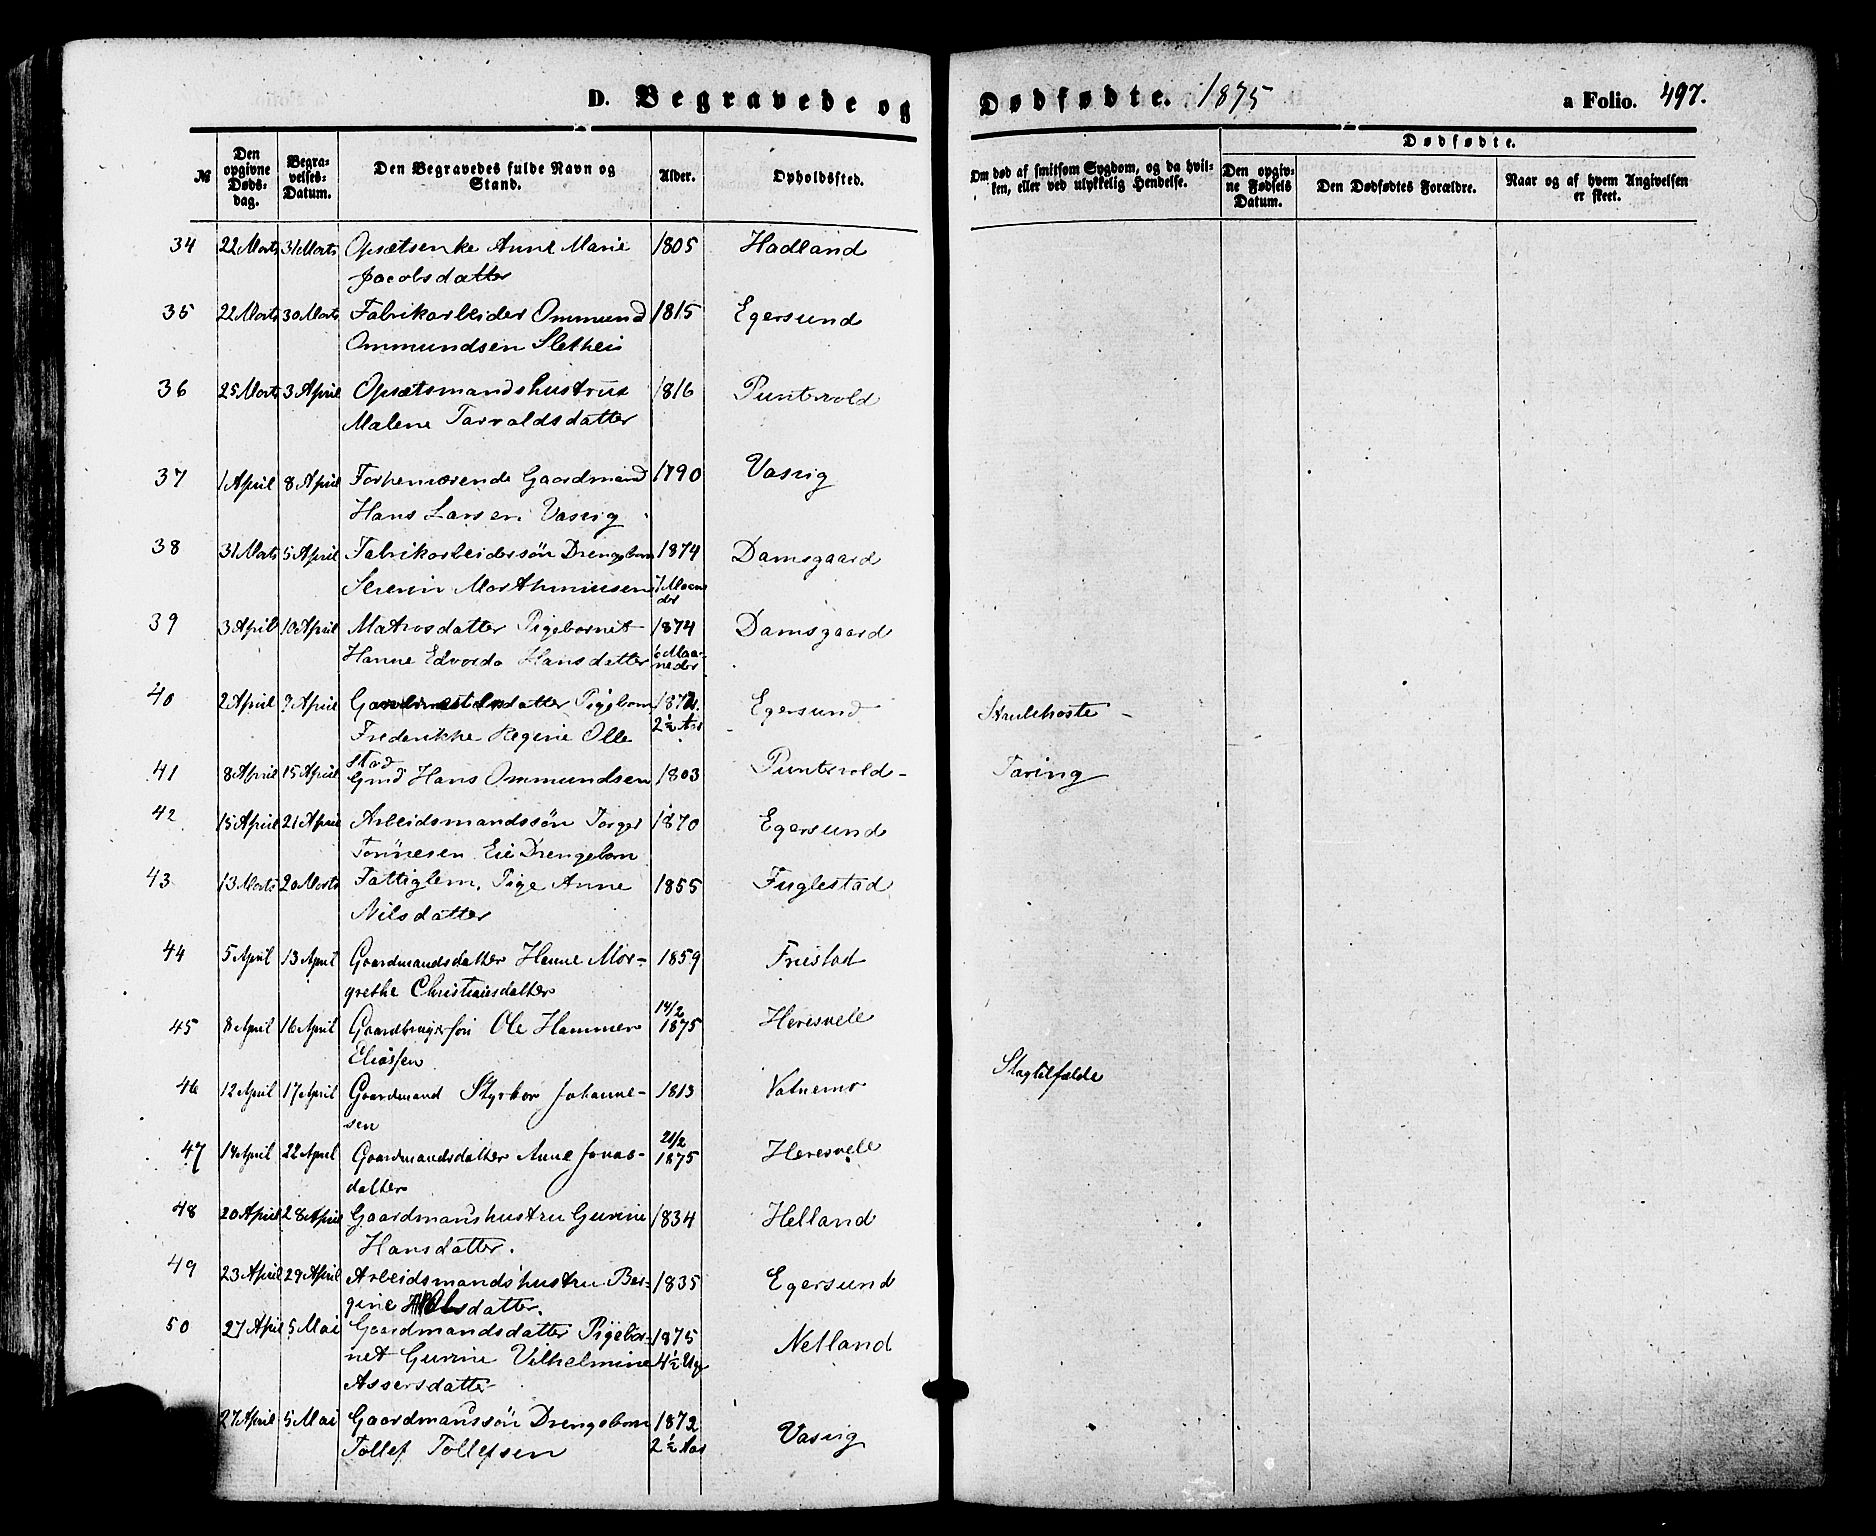 D. Begravede og Dødfødte. 1875 a Folio. 497.
№ Den opgivne Døds-dag. Begra-velses-Datum. Den Begravedes fulde Navn og Stand. Alder. Opholdsted. Om død af smitsom Sygdom, og da hvil-ken, eller ved ulykkelig Hendelse. Dødfødte. Den opgiv-ne Fødsels Datum. Den Dødfødtes Forældre. Naar og af hvem Angivelsen er skeet.
34 22 Marts 31 Marts Opsætsenke Anne Marie 1805 Hadland
Jacobsdatter
35 22 Marts 30 Marts Fabrikarbeider Ommund 1815 Egersund
Ommundsen Slethei
36 25 Marts 3 April Opsætsmandshustrue 1816 Puntervold
Malene Tarvaldsdatter
37 1 April 8 April Forhenværende Gaardmand 1790 Vasvig
Hans Larsen Vasvig
38 31 Marts 5 April Fabrikarbeidersøn Drengebarn 1874 Damsgaard
Severin Marthiniusen 7 Maaneder
39 3 April 10 April Matrosdatter Pigebarnet 1874 Damsgaard
Hanne Edvarda Hansdatter 6 Maa-neder
40 2 April 7 April datter Pigebarn 1872 Egersund Strubehoste
Frederikke Regine Olle 2½ Aar
stad
41 8 April 15 April Gmd Hans Ommundsen 1803 Puntervold Tæring
42 15 April 21 April Arbeidsmandssøn Torger 1870 Egersund
Tønnesen Eie Drengebarn
43 13 Marts 20 Marts Fattiglem, Pige Anne 1855 Fuglestad
Nilsdatter
44 5 April 13 April Gaardmandsdatter Hanne Mar- 1859 Friestad
grethe Christiansdatter
14/2
45 8 April 16 April Gaardbrugersøn Ole Hammer 1875 Heresvele
Eliassen
46 12 April 17 April Gaardmand Styrkor Johanne- 1813 Vatnemo Slagtilfælde
sen
21/2
47 14 April 22 April Gaardmandsdatter Anne Jonas- 1875 Heresvele
datter
48 20 April 28 April Gaardmandshustru Gurine 1834 Helland
Hansdatter.
49 23 April 29 April Arbeidsmandshustru Ber- 1835 Egersund
gine Olsdatter.
50 27 April 5 Mai Gaardmandsdatter Pigebar- 1875 Netland
net Gurine Vilhelmine 4½ Uge
Assersdatter
27 April 5 Mai Gaardmandssøn Drengebarn 1872 Vasvig
Tollef Tollefsen 2½ Aar